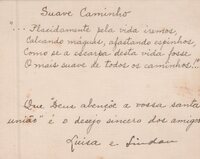 Suave Caminho
"... Placidamente pela vida iremos,
Calcando mágoas, afastando espinhos,
Como se a escarpa desta vida fosse
O mais suave de todos os caminhos..."
Que Deus abençôe a vossa santa
união" é o desejo sincero dos amigos
Luisa e